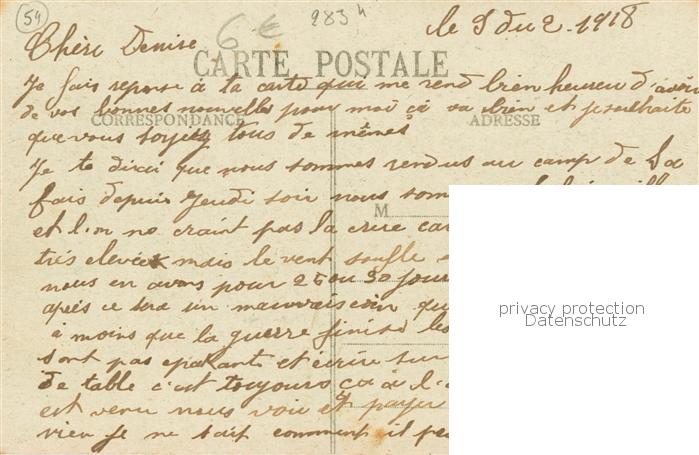 54
6€
283 h
le 8 du 2. 1918
Chère Denise
CARTE POSTALE
Je fais reponse à ta carte qui me rend bien heureu d'avoir
de vos bonnes nouvelles pour moi ça va bien et je souhaite
CORRESPONDANCE
ADRESSE
que vous soyez tous de mêmes
Je te dirai que nous sommes rendus au camp de La
fais depuis Jeudi soir nous som
M
et l'on ne craint pas la crue car
très elevée mais le vent souffle
nous en avons pour 25 ou 30 jour
après ce sera un mauvais coin qu
à moins que la guerre finisse les
sont pas epatants et écrire sur
de table c'est toujours ça à l'
est venu nous voir et payer
rien Je ne sait comment il pe
privacy protection
Datenschutz